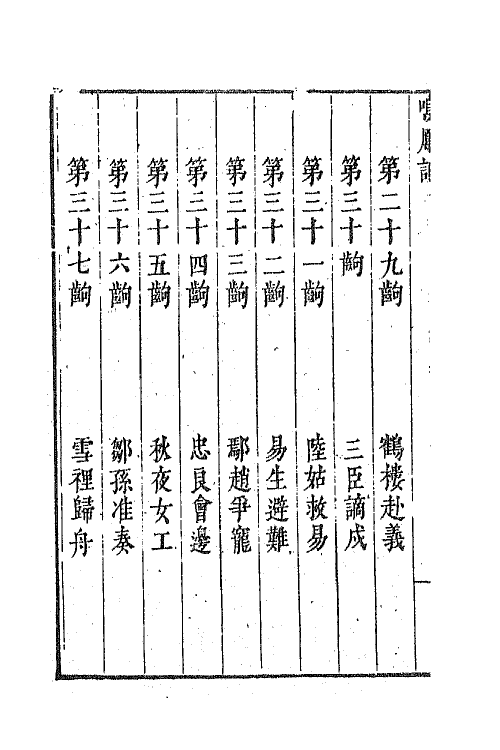 第二十九齣 鶴樓赴義
第三十齣 三臣謫戍
第三十一齣 陸姑救易
第三十二齣 易生避難
第三十三齣 鄢趙爭寵
第三十四齣 忠良會邊
第三十五齣 秋夜女工
第三十六齣 鄒孫准奏
第三十七齣 雪裡歸舟